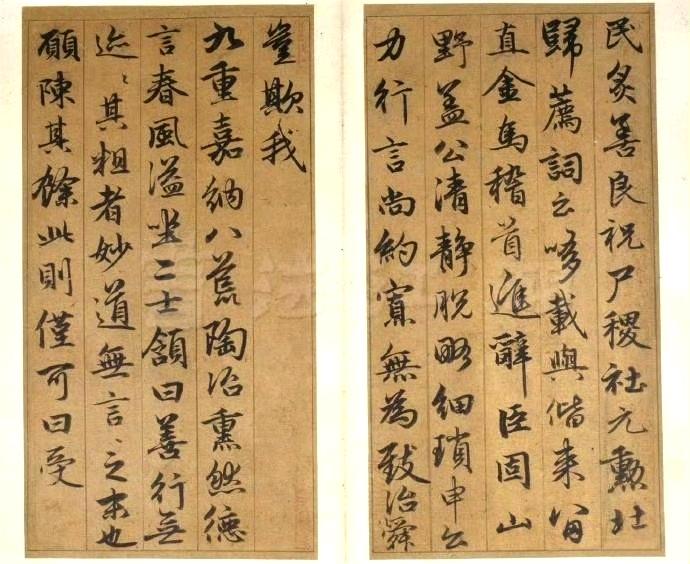 民炙善良祝尸稷社元勳壯
歸薦詞云哆載與偕來寓
直金馬稽首進辭臣固山
野蓋公清靜脫略細瑣申公
力行言尚約寡無為致治舜
豈欺我
九重嘉納八荒陶冶熏然德
言春風溢坐二士頷曰善行無
迹〻其粗者妙道無言〻之末也
願陳其餘此則僅可曰受